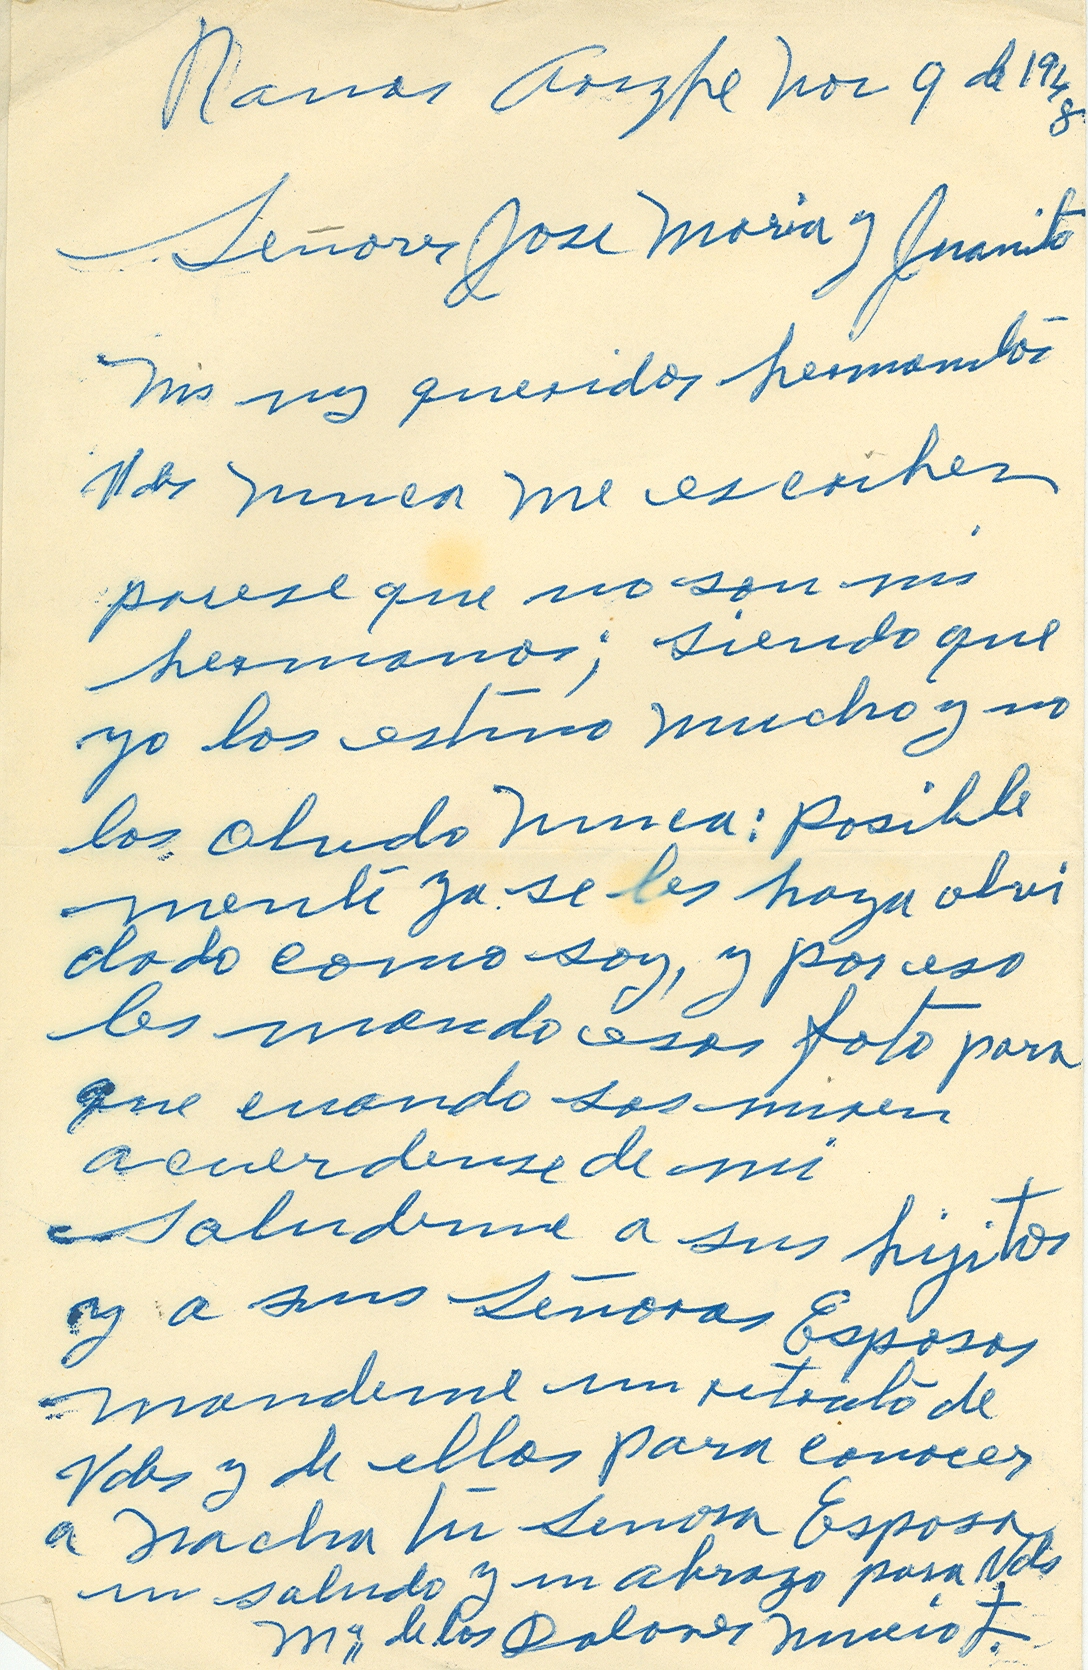 Ramos Arizpe Nov 9 de 1948
Señores Jose Maria y Juanito
Mis muy queridos hermanitos
Vdes nunca me escriben
parese que no son mis
hermanos; siendo que
yo los estimo mucho y no
los olvido nunca: posible
mente ya se les haya olvi
dado como soy, y por eso
les mando esas foto para
que cuando sos miren
acuerdense de mi
saludeme a sus hijitos
y a sus señoras Esposas
mandeme un retrato de
Vdes y de ellos para conocer
a Nacha tu señora Esposa
un saludo y un abrazo para Vds
Ma de los Dolores